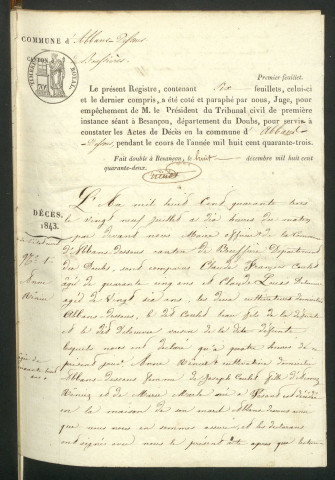 COMMUNE d'Abbans-Dessous
Premier feuillet.
TIMBRE ROYAL
Le présent Registre, contenant Dix feuillets, celui-ci
et le dernier compris, a été coté et paraphé par nous, Juge, pour
empêchement de M. le Président du Tribunal civil de première
instance séant à Besançon, département du Doubs, pour servir à
constater les Actes de Décès en la commune d'Abbans-
Dessous, pendant le cours de l'année mil huit cent quarante-trois.
Fait double à Besançon, le huit décembre mil huit cent
quarante-deux.
DÉCÈS.
1843.
N° 1
L'An mil huit Cent quarante trois
le vingt neuf juillet à dix heures du matin
par devant nous Maire officier de la Commune
d'Abbans-dessous canton de Boussières Département
du Doubs, sont comparus Claude François Coulet
agé de quarante cinq ans et Claude Louis
agé de vingt six ans, les deux cultivateurs
Abbans-dessous, le dit Coulet fils de la
et le dit voisin de la dite défunte
lesquels nous ont déclaré qu'à quatre heures du
présent jour Anne cultivatrice
Abbans-dessous femme de Joseph Coulet fille d'
et de Marie est décédée
en la maison de son mari
nous nous en sommes assuré et les déclarants
ont signé avec nous le présent acte après que lecture